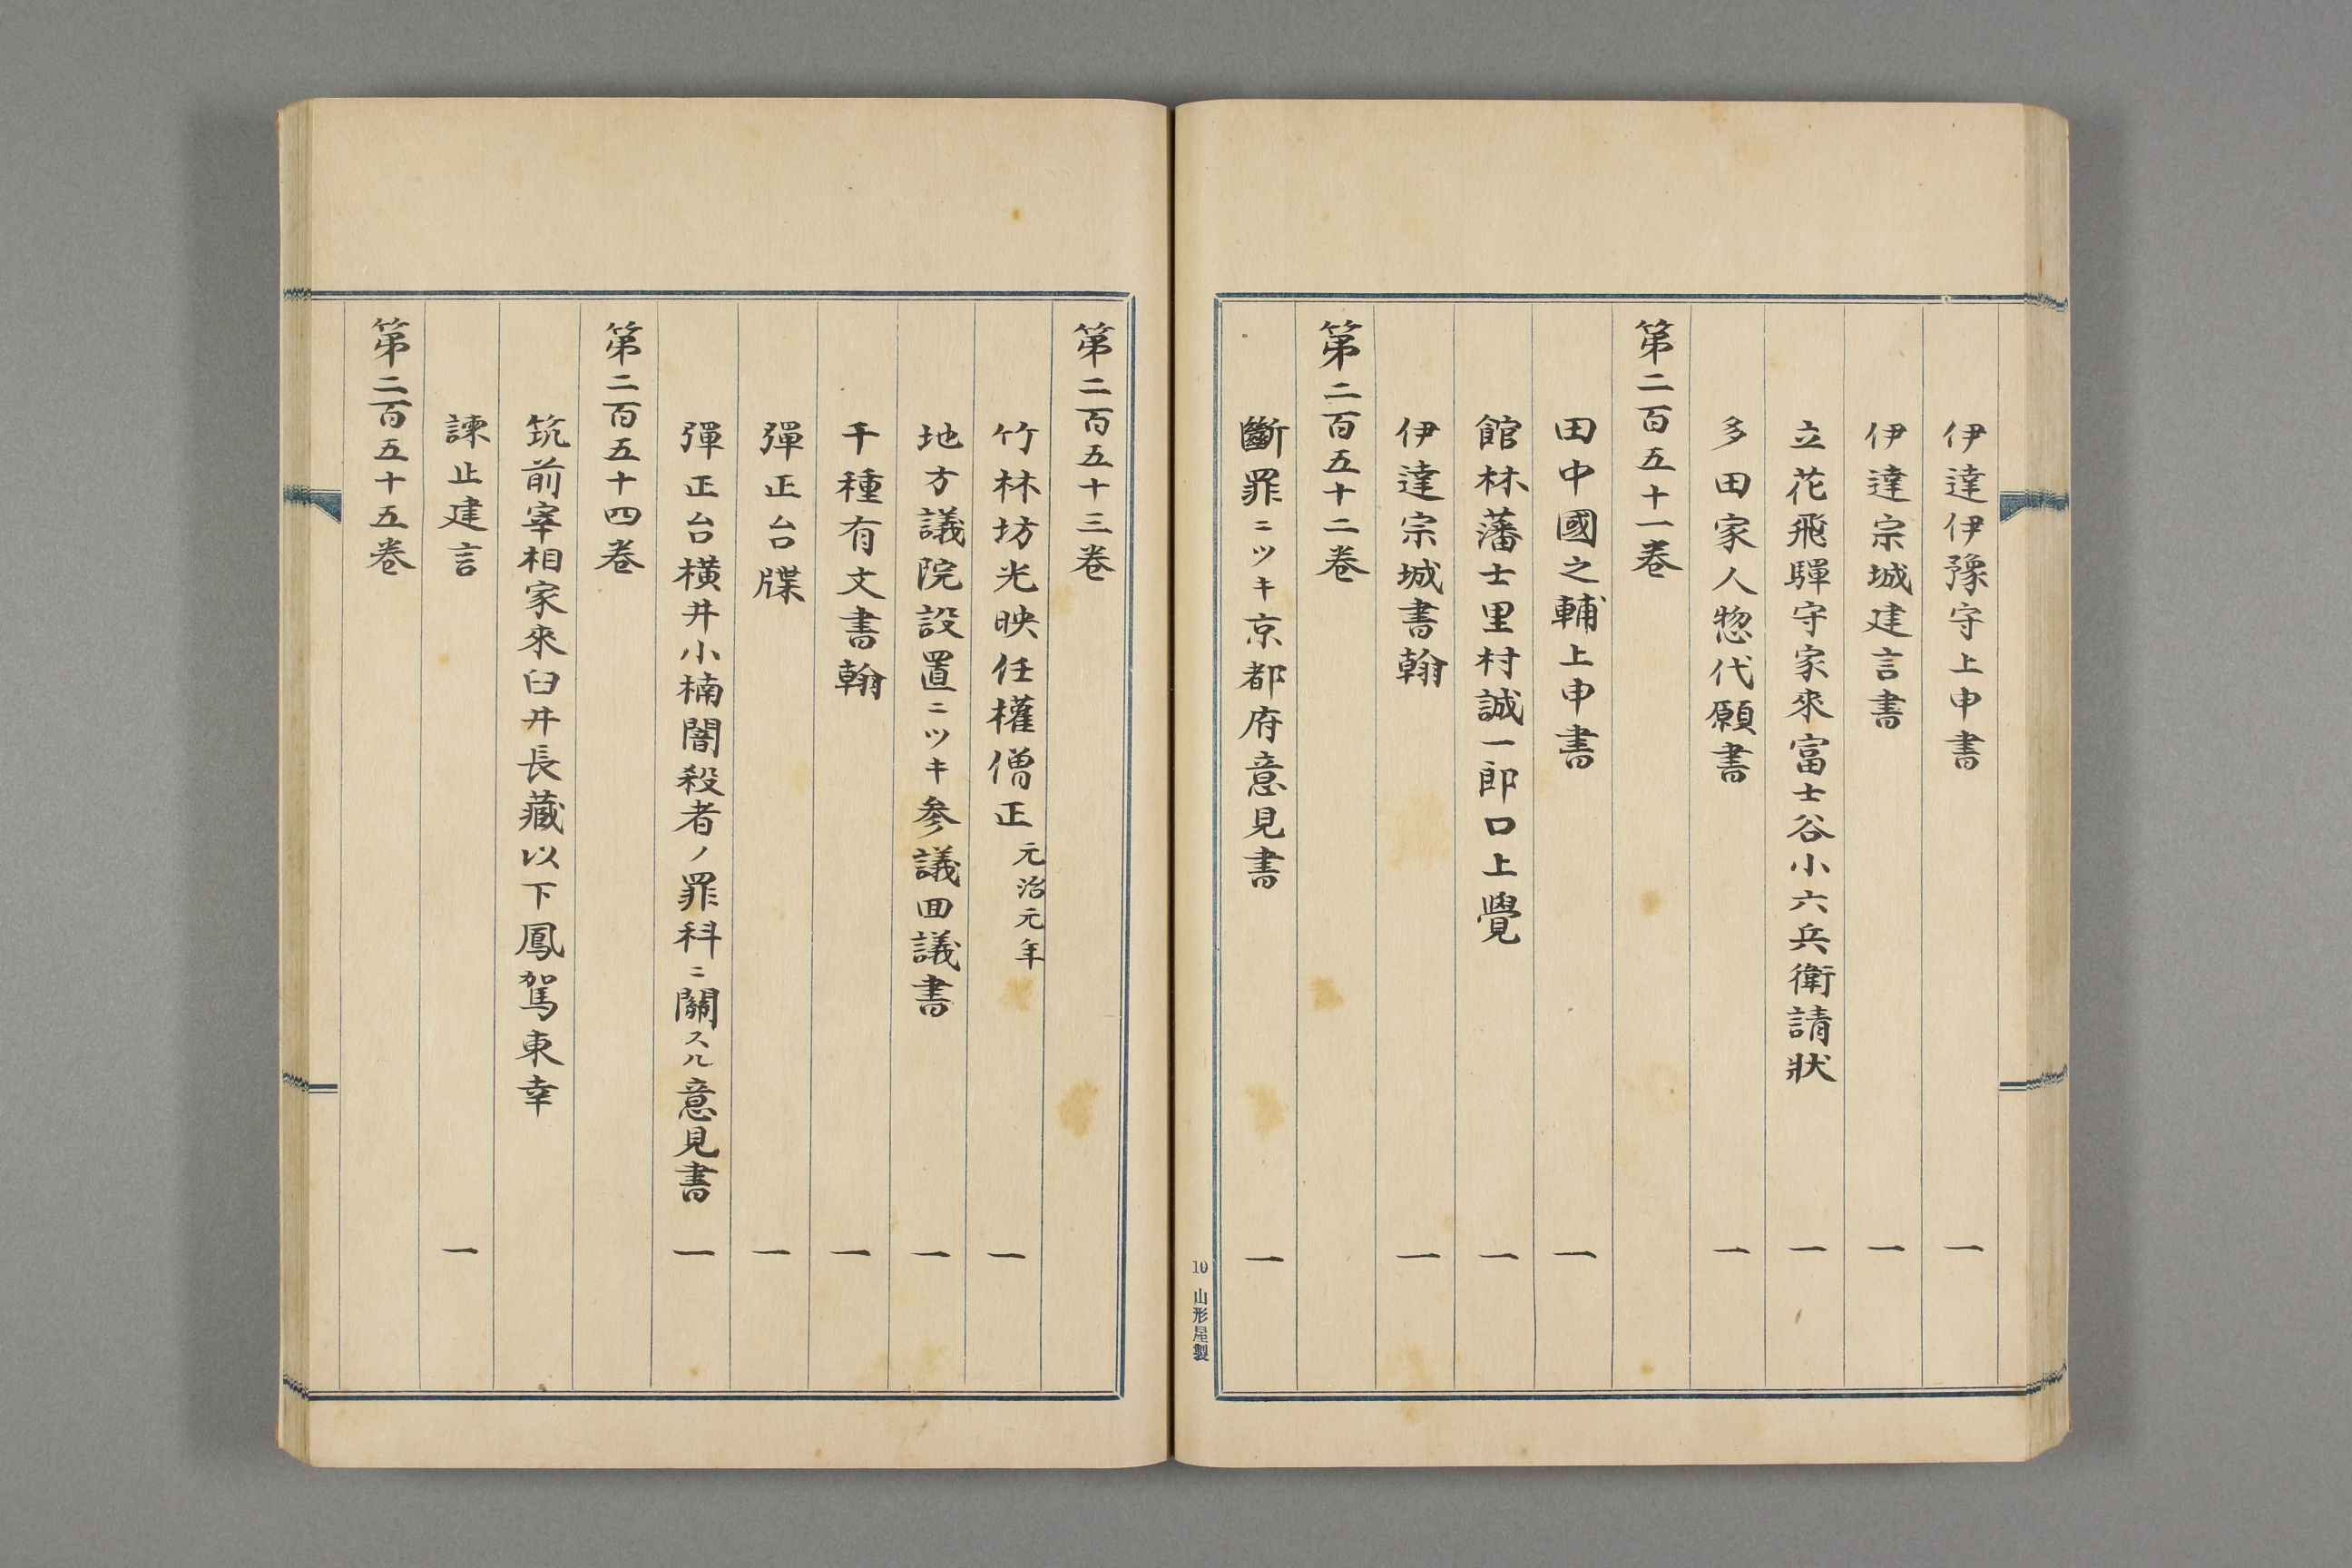 伊達伊豫守上申書 一
伊達宗城建言書 一
立花飛驒守家來富士谷小六兵衛請狀 一
多田家人惣代願書 一
第二百五十一巻
田中國之輔上申書 一
館林藩士里村誠一郎口上覺 一
伊達宗城書翰 一
第二百五十二巻
斷罪ニツキ京都府意見書 一
10 山形屋製
第二百五十三巻
竹林坊光映任權僧正 元治元年 一
地方議院設置ニツキ参議囬議書 一
千種有文書翰 一
彈正台牒 一
彈正台橫井小楠闇殺者ノ罪科ニ關スル意見書 一
第二百五十四巻
筑前宰相家來臼井長藏以下鳳駕東幸
諫止建言 一
第二百五十五巻